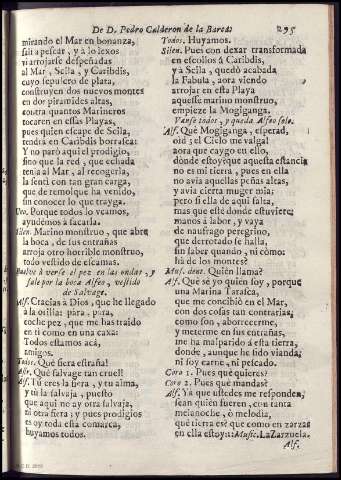 De D. Pedro Calderon de la Barca. 295
mirando el Mar en bonanza,
salì a pescar, y a lo lexos
vì arrojarse despeñadas
al Mar, Scila, y Caribdis,
cuyo sepulcro de plata,
construyen dos nuevos montes
en dos piramides altas,
contra quantos Marineros
tocaren en estas Playas,
pues quien escape de Scila,
tendrà en Caribdis borrasca:
Y no parò aqui el prodigio,
sino que la red, que echada
tenia al Mar, al recogerla,
la sentì con tan gran carga,
que de remolque la he venido,
sin conocer lo que trayga.
Uno. Porque todos lo veamos,
ayudèmos à sacarla.
Silen. Marino monstruo, que abre
la boca, de sus entrañas
arroja otro horrible monstruo,
todo vestido de escamas.
Buelve à verse el pez en las ondas, y
sale por la boca Alfeo, vestido
de Salvage.
Alf. Gracias à Dios, que he llegado
à la orilla: pàra, pàra,
coche pez, que me has traìdo
en ti como en una caxa:
Todos estamos acà,
amigos.
Todos. Què fiera estraña!
Alf. Què salvage tan cruel!
Alf. Tù eres la fiera, y tu alma,
y tù la salvaja, puesto
que aqui no ay otra salvaja,
ni otra fiera; y pues prodigios
es oy toda esta comarca,
huyamos todos.
Todos. Huyamos.
Silen. Pues con dexar transformada
en escollos à Caribdis,
y à Scila, quedò acabada
la Fabula, aora viendo
arrojar en esta Playa
aquesse marino monstruo,
empieze la Mogiganga.
Vanse todos, y queda Alfeo solo.
Alf. Què Mogiganga, esperad,
oìd; el Cielo me valga!
aora que caygo en ello,
dònde estoy? que aquesta estancia
no es mi tierra, pues en ella
no avia aquellas peñas altas,
y avia cierta muger mia;
pero si ella de aqui falta,
mas que estè donde estuviere;
manos à labor, y vaya
de naufrago peregrino,
que derrotado se halla,
sin saber quando, ni còmo:
hà de los montes?
Mus. dent. Quièn llama?
Alf. Què sè yo quien soy, porque
una Marina Tarasca,
que me concibiò en el Mar,
con dos cosas tan contrarias,
como son, aborrecerme,
y meterme en sus entrañas,
me ha malparido à esta tierra,
donde, aunque he sido vianda,
ni soy carne, ni pescado.
Coro 1. Pues què quieres?
Coro 2. Pues què mandas?
Alf. Yà que ustedes me responden,
sean quien fueren, con tanta
melanoche, ò melodia,
què tierra es? que como en zarzas
en ella estoy:: Music. La Zarzuela.
Alf.